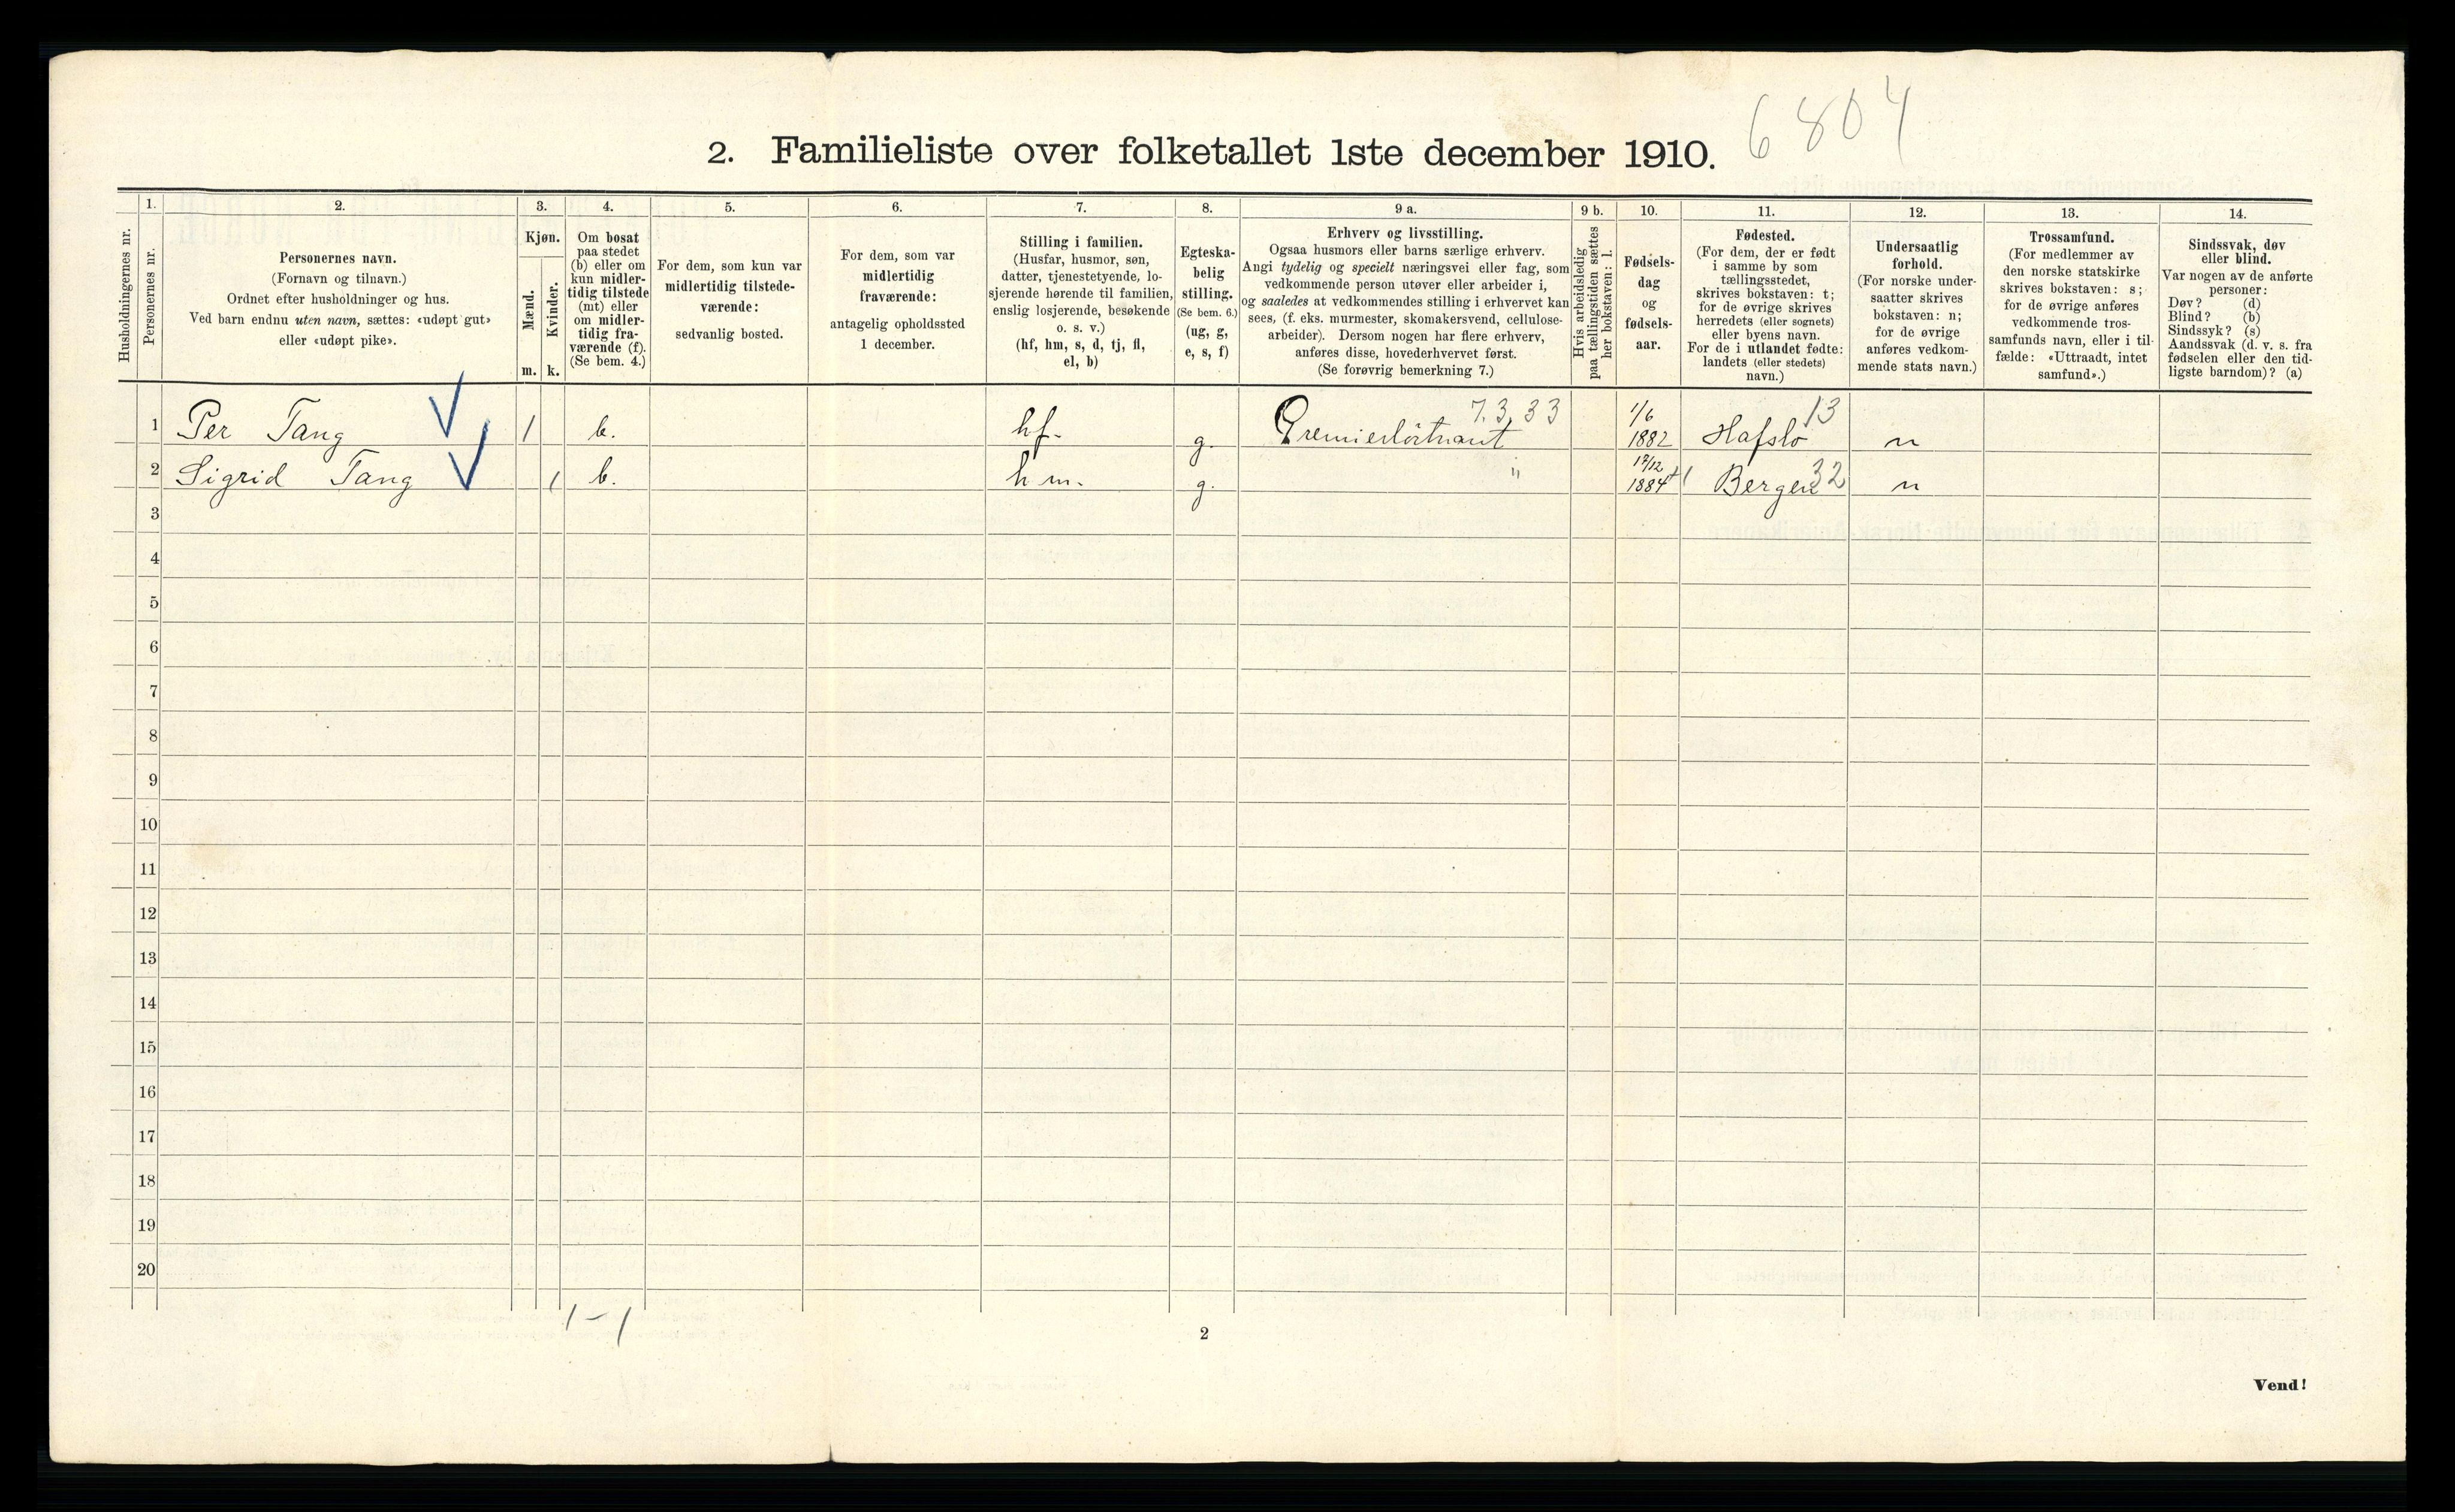 6804
2. Familieliste over folketallet 1ste december 1910.
Husholdningernes nr.
1.
Personernes nr.
2.
Personernes navn.
(Fornavn og tilnavn.)
Ordnet efter husholdninger og hus.
Ved barn endnu uten navn, sættes: «udøpt gut»
eller «udøpt pike».
3.
Kjøn.
Mænd.
Kvinder.
m. k.
4.
Om bosat
paa stedet
(b) eller om
kun midler-
tidig tilstede
(mt) eller
om midler-
tidig fra-
værende (f).
(Se bem. 4.)
5.
For dem, som kun var
midlertidig tilstede-
værende:
sedvanlig bosted.
6.
For dem, som var
midlertidig
fraværende:
antagelig opholdssted
1 december.
7.
Stilling i familien.
(Husfar, husmor, søn,
datter, tjenestetyende, lo-
sjerende hørende til familien,
enslig losjerende, besøkende
o. s. v.)
(hf, hm, s, d, tj, fl,
el, b)
8.
Egteska-
belig
stilling.
(Se bem. 6.)
(ug, g,
e, s, f)
9 a.
Erhverv og livsstilling.
Ogsaa husmors eller barns særlige erhverv.
Angi tydelig og specielt næringsvei eller fag, som
vedkommende person utøver eller arbeider i,
og saaledes at vedkommendes stilling i erhvervet kan
sees, (f. eks. murmester, skomakersvend, cellulose-
arbeider). Dersom nogen har flere erhverv,
anføres disse, hovederhvervet først.
(Se forøvrig bemerkning 7.)
9 b.
Hvis arbeidsledig
paa tællingstiden sættes
her bokstaven: l.
10.
Fødsels-
dag
og
fødsels-
aar.
11.
Fødested.
(For dem, der er født
i samme by som
tællingsstedet,
skrives bokstaven: t;
for de øvrige skrives
herredets (eller sognets)
eller byens navn.
For de i utlandet fødte:
landets (eller stedets)
navn.)
12.
Undersaatlig
forhold.
(For norske under-
saatter skrives
bokstaven: n;
for de øvrige
anføres vedkom-
mende stats navn.)
13.
Trossamfund.
(For medlemmer av
den norske statskirke
skrives bokstaven: s;
for de øvrige anføres
vedkommende tros-
samfunds navn, eller i til-
fælde: «Uttraadt, intet
samfund».)
14.
Sindssvak, døv
eller blind.
Var nogen av de anførte
personer:
Døv? (d)
Blind? (b)
Sindssyk? (s)
Aandssvak (d. v. s. fra
fødselen eller den tid-
ligste barndom)? (a)
1 Per Tang 1 b. hf. g. Premierløitnant 7.3.33 1/6 1882 Hafslo 13 n
2 Sigrid Tang 1 b. hm. g. " 17/12 1884 Bergen 32 n
3
4
5
6
7
8
9
10
11
12
13
14
15
16
17
18
19
20
1 - 1
2
Vend!